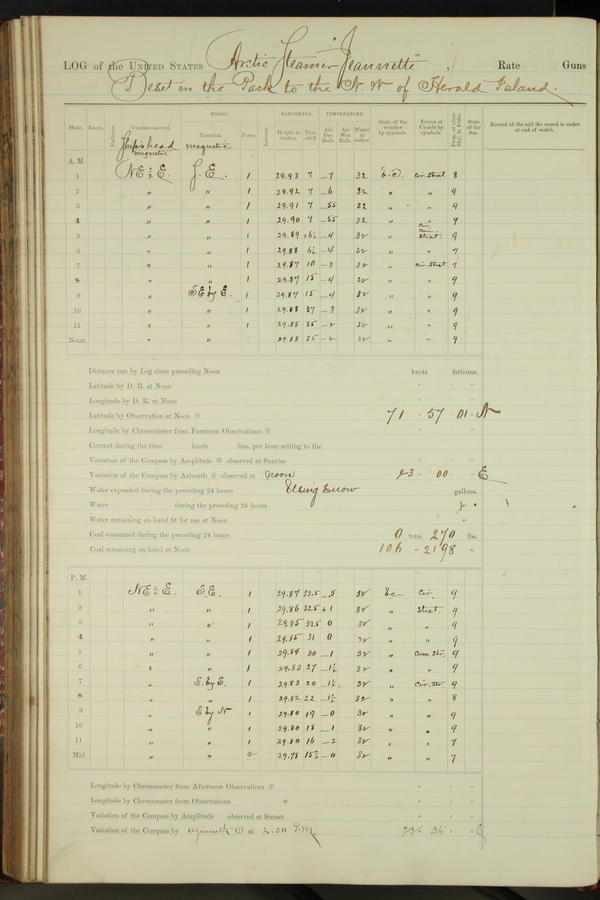 LOG of the UNITED STATES Arctic Steamer "Jeannette", Rate Guns
Beset in the Pack to the N. W. of Herald Island.
Hour. Knots. Courses steered. WINDS. Direction. Force. Leeway. BAROMETER. Height in inches. Ther. att'd. TEMPERATURE. Air Dry Bulb. Air Wet Bulb. Water at surface. State of the weather by symbols. Forms of Clouds by symbols. Prop. of clear Sky, in tenths. State of the Sea. Record of the sail the vessel is under at end of watch.
Ship's head magnetic magnetic
A. M.
1 29.93 7 -7 32 Cir. Strat 8
2 " " 1 29.92 7 -6 32 " " 9
3 " " 1 29.91 7 -55 32 " " 9
4 " " 1 29.90 7 -55 32 " " 9
5 " " 1 29.89 +6½ -4 32 " Strat. 9
6 " " 1 29.88 6½ -4 32 " " 7
7 " " 1 29.87 10 -3 32 " Cir. Strat. 7
8 " " 1 29.87 15 -4 32 " " 9
9 " SE by E. 1 29.87 15 -4 32 " " 9
10 " " 1 29.88 37 -3 32 " " 9
11 " " 1 29.88 35 -2 32 " " 9
Noon. " " 1 29.88 35 -2 32 " " 9
Distance run by Log since preceding Noon knots fathoms.
Latitude by D. R. at Noon ° ' "
Longitude by D. R. at Noon ° ' "
Latitude by Observation at Noon 71 ° 57 ' 01 " N
Longitude by Chronometer from Forenoon Observations ° ' "
Current during the time knots fms. per hour setting to the
Variation of the Compass by Amplitude observed at Sunrise ° ' "
Variation of the Compass by Azimuth observed at Noon 23 ° 00 ' " E
Water expended during the preceding 24 hours Using Snow gallons.
Water during the preceding 24 hours "
Water remaining on hand fit for use at Noon "
Coal consumed during the preceding 24 hours 0 tons. 270 lbs.
Coal remaining on hand at Noon 106 " 2198 "
P. M.
1 S.E. 1 29.87 32.5 -.5 32 bc Cir. 9
2 " " 1 29.86 32.5 +1 32 " Strat. 9
3 " " 1 29.85 32.5 0 32 " " 9
4 " " 1 29.85 31 0 32 " " 9
5 " " 1 29.84 30 -1 32 " Cum. Str. 9
6 " " 1 29.83 27 -1½ 32 " " 9
7 " E. by S. 1 29.83 20 -1½ 32 " Cir. Str. 9
8 " " 1 29.82 22 -1½ 32 " " 8
9 " E by N 1 29.80 19 -0 32 " " 9
10 " " 1 29.80 18 -1 32 " " 9
11 " " 1 29.80 16 -2 32 " " 7
Mid. " " 2 29.78 15½ -0 32 " " 7
Longitude by Chronometer from Afternoon Observations ° ' "
Longitude by Chronometer from Observations * ° ' "
Variation of the Compass by Amplitude observed at Sunset ° ' "
Variation of the Compass by azimuth at 2.30 P.M. 36 ' " E